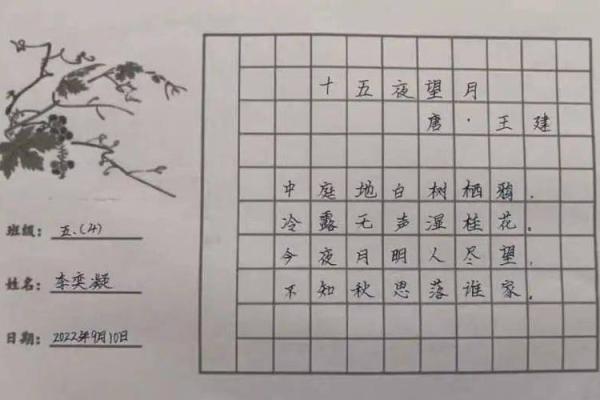 班级：五.(4)
姓名：李奕凝
日期：2022年9月10日
十五夜望月
唐·王建
中庭地白树栖鸦，
冷露无声湿桂花。
今夜月明人尽望，
不知秋思落谁家。